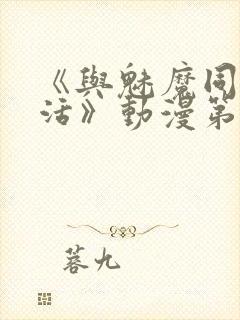 《與魅魔同
活》動漫第
蒼九